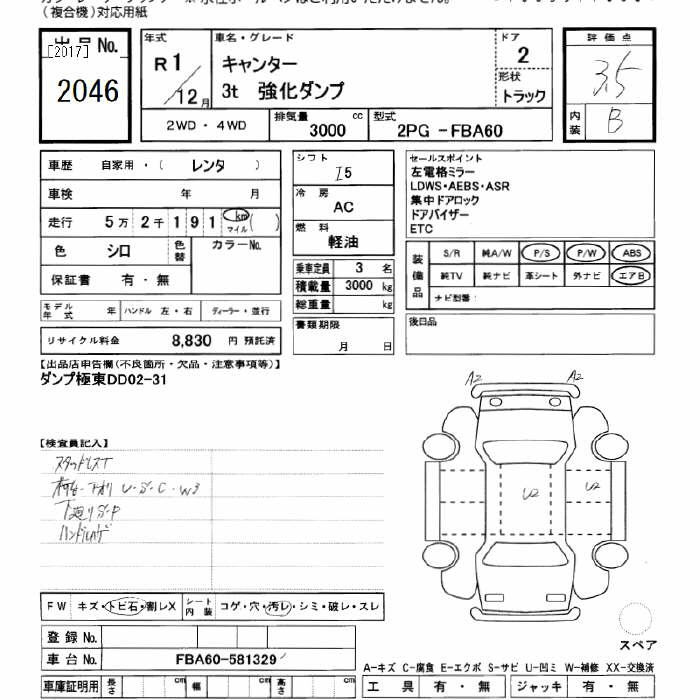 （複合機）対応用紙
出品No.
[2017]
2046
年式
R1/12月
車名・グレード
キャンター
3t 強化ダンプ
ドア
2
形状
トラック
2WD・4WD
排気量 3000 cc
型式 2PG-FBA60
評価点
3.5
内装 B
車歴 自家用・（ レンタ ）
車検 年 月
走行 5万 2千 1 9 1 km マイル ( )
色 シロ 色替 カラーNo.
保証書 有・無
モデル年式 年 ハンドル 左・右 ディーラー・並行
リサイクル料金 8,830 円 預託済
シフト
I5
冷房
AC
燃料
軽油
乗車定員 3 名
積載量 3000 kg
総重量 kg
書類期限
月 日
セールスポイント
左電格ミラー
LDWS・AEBS・ASR
集中ドアロック
ドアバイザー
ETC
装備品
S/R 純A/W P/S P/W ABS
純TV 純ナビ 革シート 外ナビ エアB
ナビ型番：
後日品
【出品店申告欄（不良箇所・欠品・注意事項等）】
ダンプ極東DD02-31
【検査員記入】
スタッドレスT
荷台・下廻り U・S・C・W3
下廻りS・P
ハンドルハゲ
A2 A2
U2 U2
FW キズ・トビ石・割レX シート内装 コゲ・穴・汚レ・シミ・破レ・スレ
登録No.
車台No. FBA60-581329
車庫証明用 長さ cm 幅 cm 高さ cm
スペア
A-キズ C-腐食 E-エクボ S-サビ U-凹ミ W-補修 XX-交換済
工具 有・無 ジャッキ 有・無